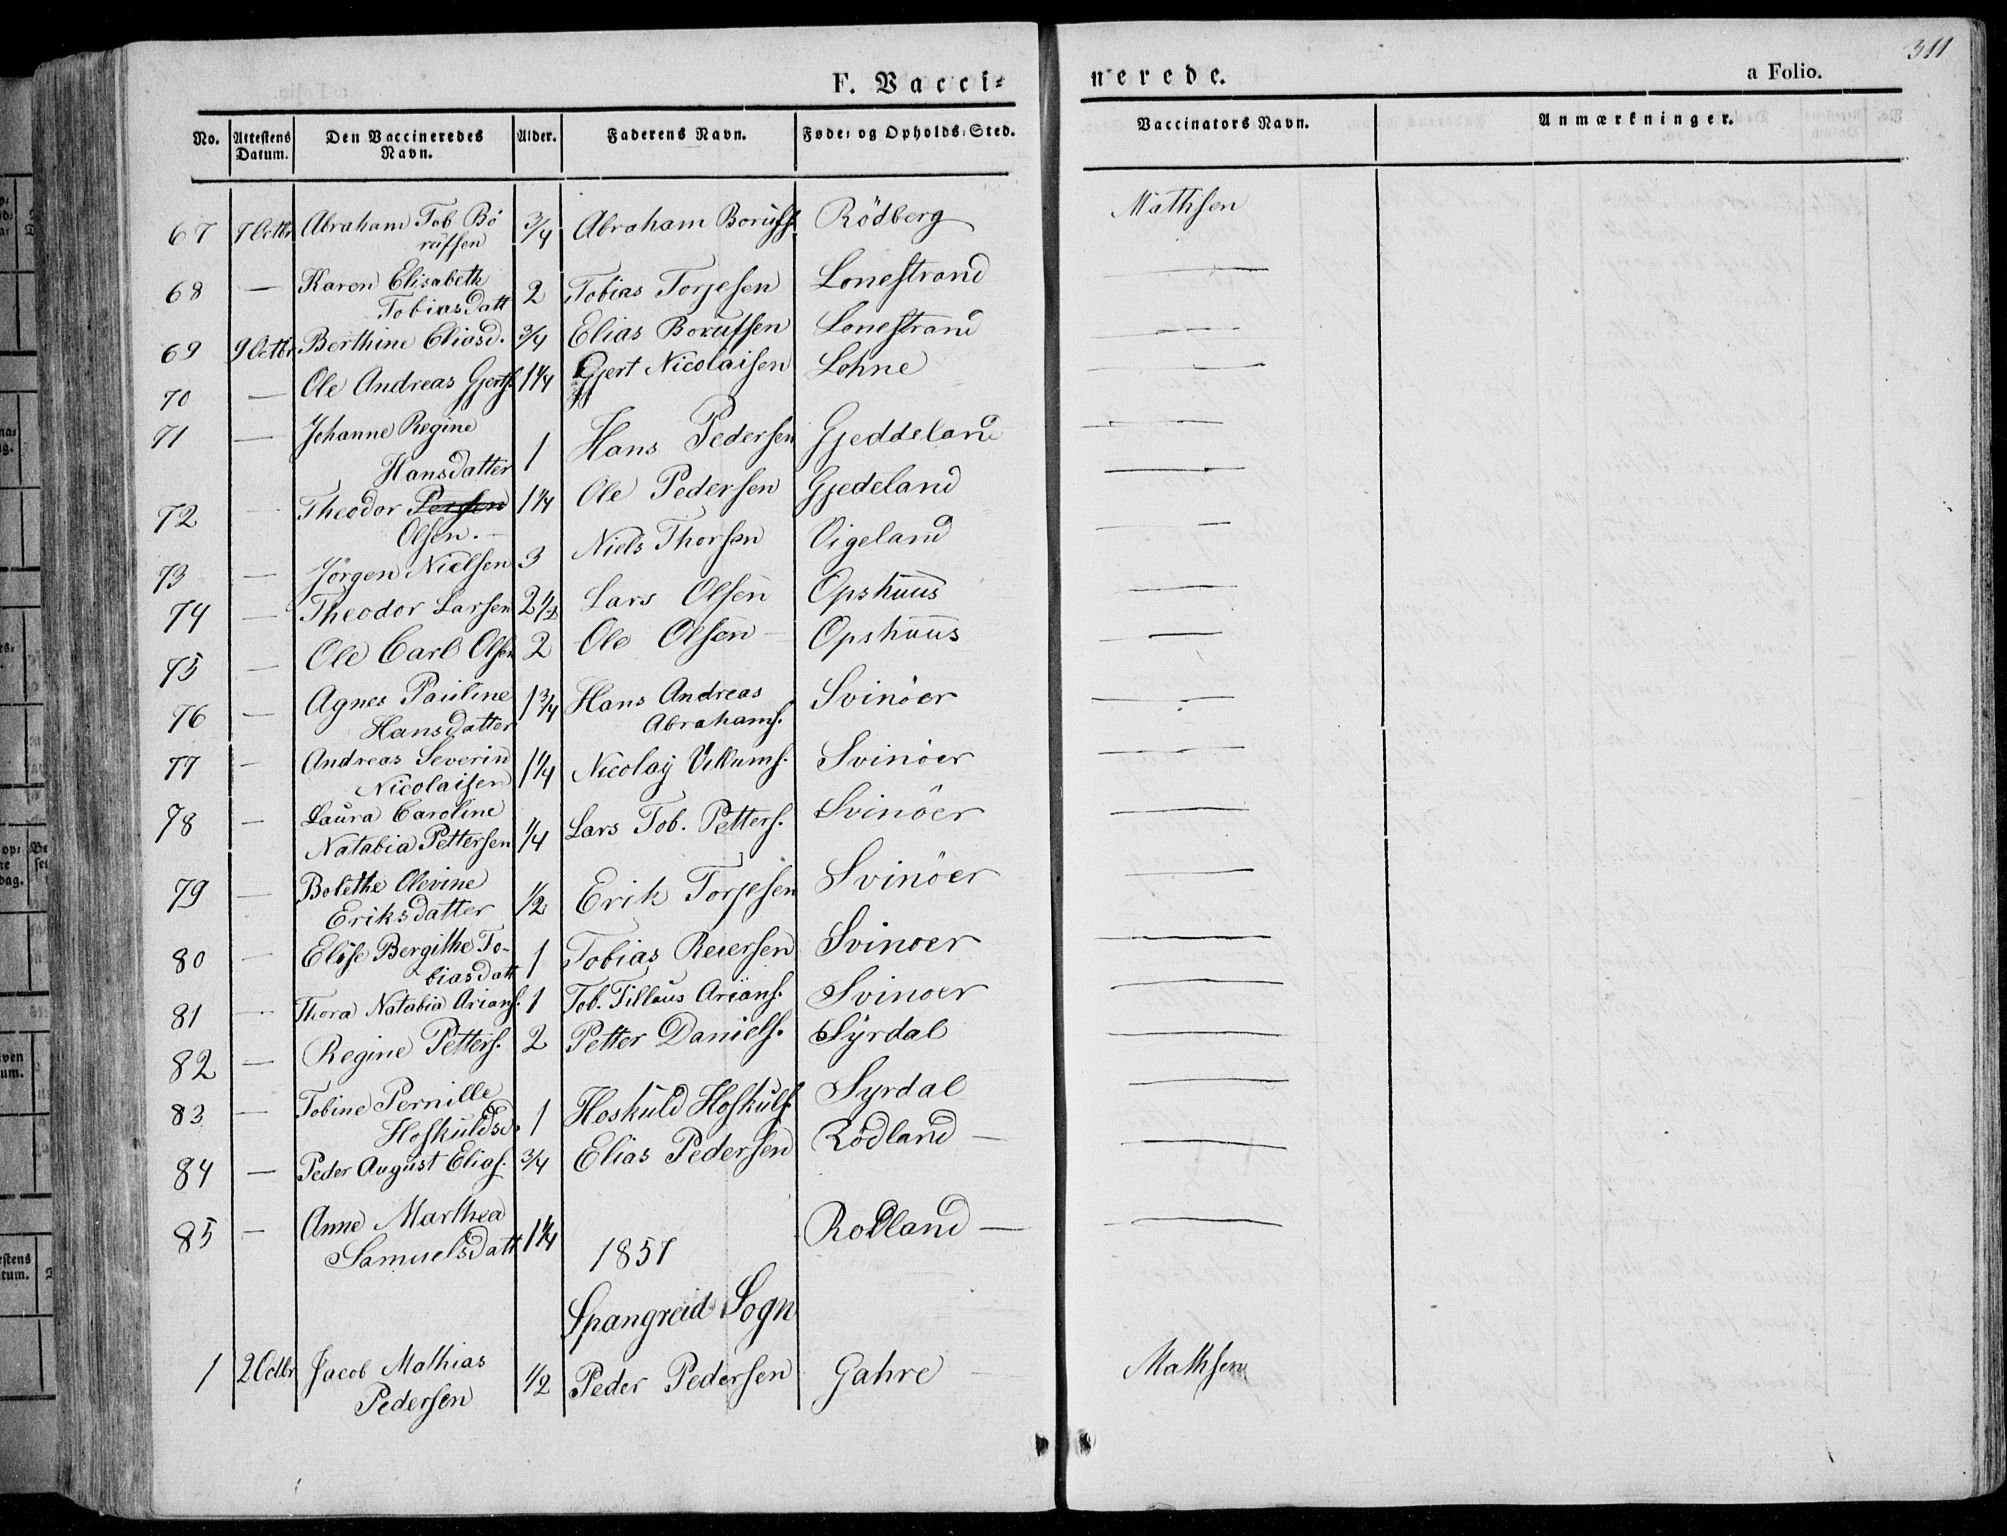 311
F. Vacci- nerede. a Folio.
No. Attestens Datum. Den Vaccineredes Navn. Alder. Faderens Navn. Føde- og Opholds-Sted. Vaccinators Navn. Anmærkninger.
67 7 Octbr Abraham Tob. Bö 3/4 Abraham Borufs. Rödberg Mathsen
rufsen
68 — Karen Elisabeth 2 Tobias Torjesen Lonestrand —
Tobiasdatt
69 9 Octbr. Berthine Eliasd. 3/4 Elias Borufsen Lonestrand —
70 — Ole Andreas Gjerts. 1 1/4 Gjert Nicolaisen Lohne —
71 — Johanne Regine 1 Hans Pedersen Gjeddeland —
Hansdatter
72 — Theodor 1 1/4 Ole Pedersen Gjedeland —
Olsen. —
73 — Jörgen Nielsen 3 Niels Thorsen Vigeland —
74 — Theodor Larsen 2 1/2 Lars Olsen Opshuus —
75 — Ole Carl Olsen 2 Ole Olsen — Opshuus —
76 — Agnes Pauline 1 3/4 Hans Andreas Svinöer —
Hansdatter Abrahams.
77 — Andreas Severin 1 1/4 Nicolay Villums. Svinöer —
Nicolaisen
78 — Laura Caroline 1/4 Lars Tob. Petters. Svinöer —
Natabia Pettersen
79 — Bolethe Olevine 1/2 Erik Torjesen Svinöer —
Eriksdatter
80 — Elise Bergithe To- 1 Tobias Reiersen Svinoer —
biasdatt
81 — Thora Natabia Arians. 1 Tob. Tillaus Arians. Svinoer —
82 — Regine Petters. 2 Petter Daniels. Syrdal —
83 — Tobine Pernille 1 Hoskuld Hoskuls. Syrdal —
Hoskuldsd.
84 — Peder August Elias. 3/4 Elias Pedersen Rödland — —
85 — Anne Marthea 1 1/4 Rodland — —
Samuelsdatt
1857
Spangreid Sogn
1 2 Octbr Jacob Mathias 1/2 Peder Pedersen Gahre — Mathsen
Pedersen